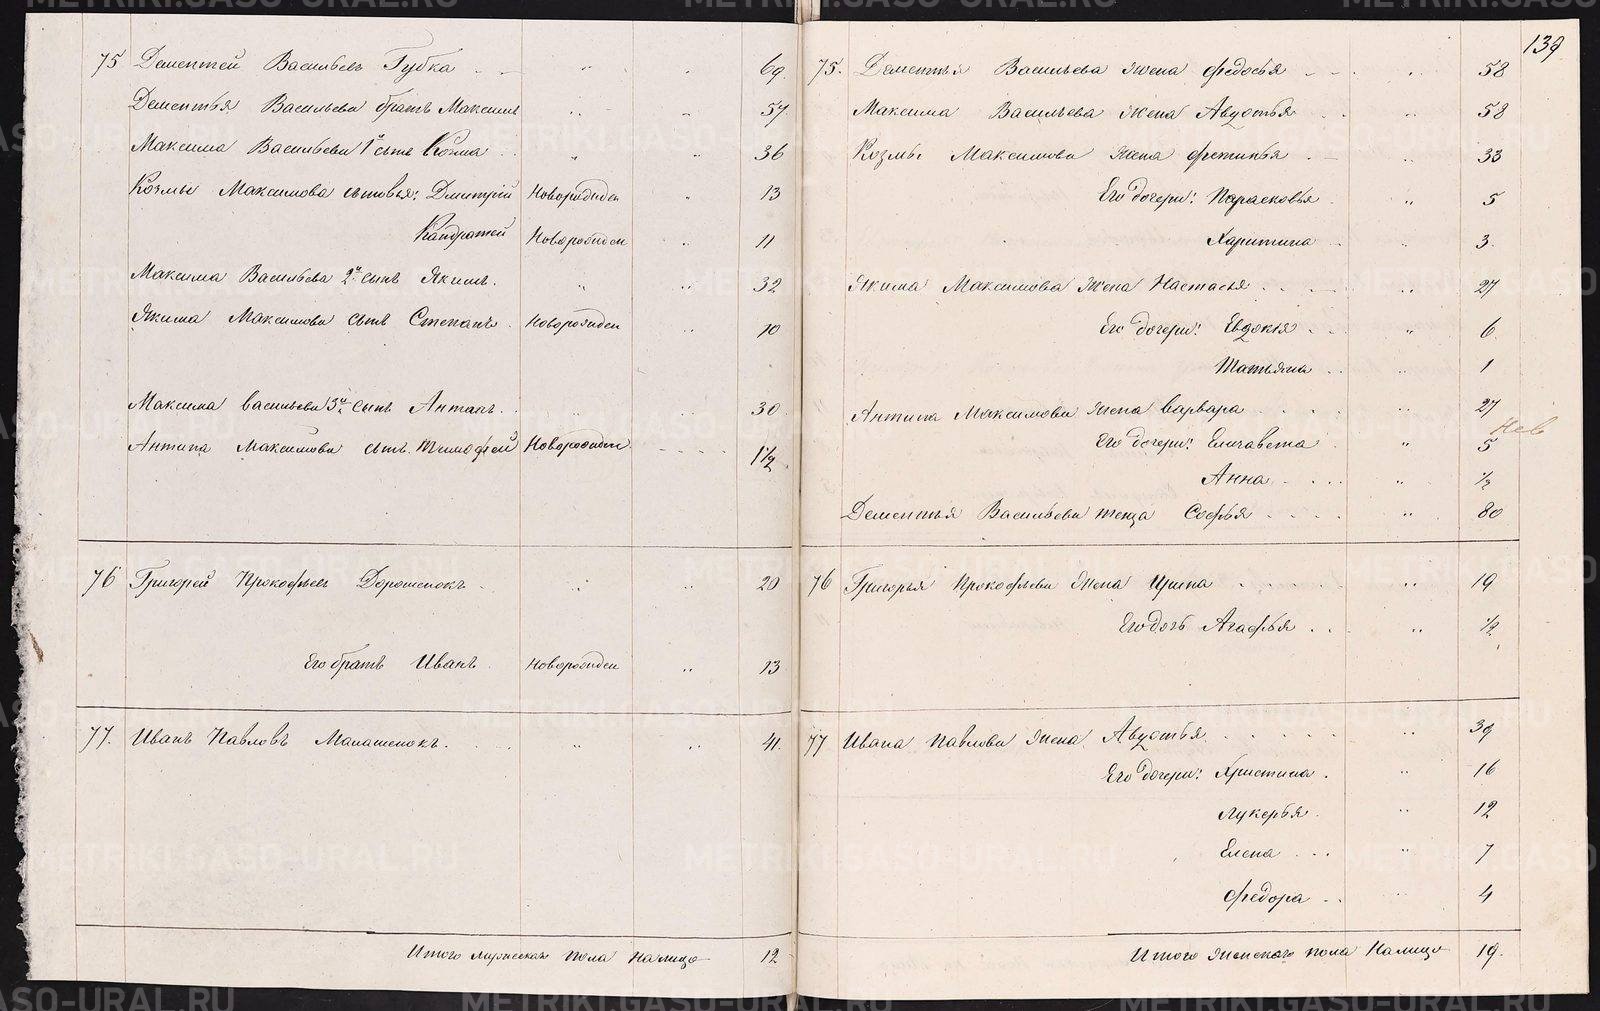 139
75 Дементей Васильевъ Губка 69
Дементья Васильева братъ Максимъ 57
Максима Васильева 1й сынъ Козма 36
Козмы Максимова сыновья: Дмитрій Новорожден 13
Кандратей Новорожден 11
Максима Васильева 2й сынъ Якимъ. 32
Якима Максимова сынъ Степанъ. Новорожден 10
Максима Васильева 3й сынъ Антипъ. 30
Антипа Максимова сынъ. Тимофей Новорожден 1½
76 Григорей Прокофьевъ Дорошенокъ 20
Его братъ Иванъ Новорожден 13
77. Иванъ Павловъ Малашенокъ. 41
Итого мужеска пола налицо 12
75. Дементья Васильева жена Федосья 58
Максима Васильева жена Авдотья 58
Козмы Максимова жена Фетинья 33
Его дочери: Парасковья 5
Харитина 3
Якима Максимова жена Настасья 27
Его дочери: Евдокія 6
Татьяна 1
Антипа Максимова жена Варвара 27
Его дочери: Елизавета 5
Анна ½
Дементья Васильева теща Софья 80
76 Григорья Прокофьева жена Ирина 19
Его дочь Агафья ½
77 Ивана Павлова жена Авдотья 39
Его дочери: Христина 16
Лукерья 12
Елена 7
Федора 4
Итого женскаго пола налицо 19.
METRIKI.GASO-URAL.RU